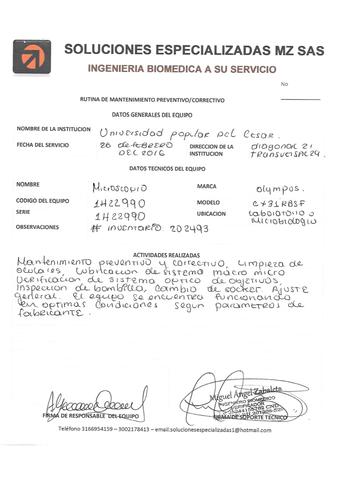 SOLUCIONES ESPECIALIZADAS MZ SAS
INGENIERIA BIOMEDICA A SU SERVICIO
No
RUTINA DE MANTENIMIENTO PREVENTIVO/CORRECTIVO
DATOS GENERALES DEL EQUIPO
NOMBRE DE LA INSTITUCION Universidad Popular Del Cesar.
FECHA DEL SERVICIO 26 de febrero DEL 2016 DIRECCION DE LA INSTITUCION diagonal 21 Transversal 24.
DATOS TECNICOS DEL EQUIPO
NOMBRE Microscopio MARCA olympos.
CODIGO DEL EQUIPO 1H22990 MODELO CX31RBSF
SERIE 1H22990 UBICACION Laboratorio Microbiologia
OBSERVACIONES # inventario 202493
ACTIVIDADES REALIZADAS
Mantenimiento preventivo y correctivo, Limpieza de
oculares, lubricacion de sistema macro micro
Verificacion de sistema optico de objetivos,
Inspeccion de bombillo, cambio de socker. Ajuste
general. El equipo se encuentra funcionando
en optimas condiciones segun parametros de
fabricante.
Miguel Angel Zabaleta
INGENIERO BIOMEDICO
FIRMA DE RESPONSABLE DEL EQUIPO FIRMA DE SOPORTE TECNICO
Teléfono 3166954159 – 3002178413 – email:solucionesespecializadas1@hotmail.com